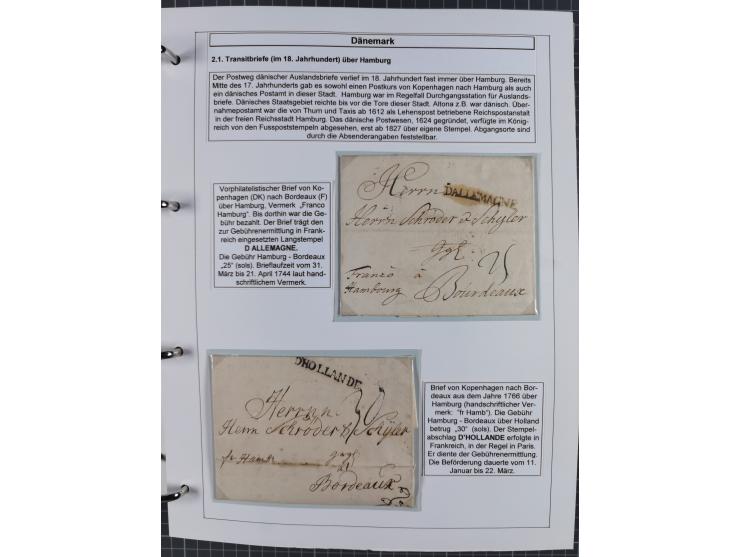 Dänemark
2.1. Transitbriefe (im 18. Jahrhundert) über Hamburg
Der Postweg dänischer Auslandsbriefe verlief im 18. Jahrhundert fast immer über Hamburg. Bereits
Mitte des 17. Jahrhunderts gab es sowohl einen Postkurs von Kopenhagen nach Hamburg als auch
ein dänisches Postamt in dieser Stadt. Hamburg war im Regelfall Durchgangsstation für Auslands-
briefe. Dänisches Staatsgebiet reichte bis vor die Tore dieser Stadt. Altona z.B. war dänisch. Über-
nahmepostamt war die von Thurn und Taxis ab 1612 als Lehenspost betriebene Reichspostanstalt
in der freien Reichsstadt Hamburg. Das dänische Postwesen, 1624 gegründet, verfügte im König-
reich von den Fusspoststempeln abgesehen, erst ab 1827 über eigene Stempel. Abgangsorte sind
durch die Absenderangaben feststellbar.
Vorphilatelistischer Brief von Ko-
penhagen (DK) nach Bordeaux (F)
über Hamburg, Vermerk „Franco
Hamburg“. Bis dorthin war die Ge-
bühr bezahlt. Der Brief trägt den
zur Gebührenermittlung in Frank-
reich eingesetzten Langstempel
D ALLEMAGNE.
Die Gebühr Hamburg - Bordeaux
„25“ (sols). Brieflaufzeit vom 31.
März bis 21. April 1744 laut hand-
schriftlichem Vermerk.
Herrn
DALLEMAGNE
Herrn Schröder & Schyler
25
Franco à
Hambourg
Bourdeaux
D'HOLLANDE
Herrn
30
Herrn Schröder & Schyler
fr Hamb
Bordeaux
Brief von Kopenhagen nach Bor-
deaux aus dem Jahre 1766 über
Hamburg (handschriftlicher Ver-
merk: "fr Hamb"). Die Gebühr
Hamburg - Bordeaux über Holland
betrug „30“ (sols). Der Stempel-
abschlag D'HOLLANDE erfolgte in
Frankreich, in der Regel in Paris.
Er diente der Gebührenermittlung.
Die Beförderung dauerte vom 11.
Januar bis 22. März.